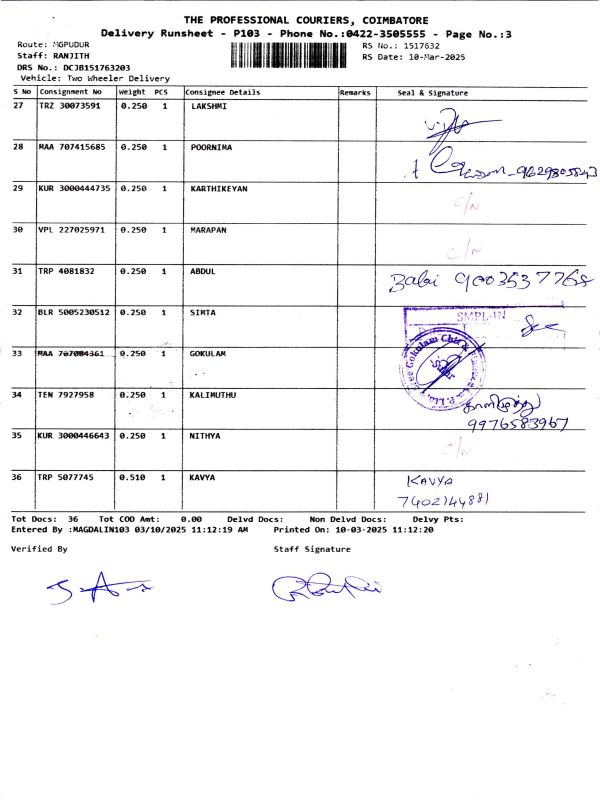 THE PROFESSIONAL COURIERS, COIMBATORE
Delivery Runsheet - P103 - Phone No.:0422-3505555 - Page No.:3
Route: MGPUDUR RS No.: 1517632
Staff: RANJITH RS Date: 10-Mar-2025
DRS No.: DCJB151763203
Vehicle: Two Wheeler Delivery
S No Consignment No Weight PCS Consignee Details Remarks Seal & Signature
27 TRZ 30073591 0.250 1 LAKSHMI
28 MAA 707415685 0.250 1 POORNIMA 9629805843
29 KUR 3000444735 0.250 1 KARTHIKEYAN C/N
30 VPL 227025971 0.250 1 MARAPAN C/N
31 TRP 4081832 0.250 1 ABDUL Babi 9003537768
32 BLR 5005230512 0.250 1 SIMTA SMPL-IN
33 MAA 707084361 0.250 1 GOKULAM
34 TEN 7927958 0.250 1 KALIMUTHU காளிமுத்து
9976583967
35 KUR 3000446643 0.250 1 NITHYA C/N
36 TRP 5077745 0.510 1 KAVYA KAVYA
7402144881
Tot Docs: 36 Tot COD Amt: 0.00 Delvd Docs: Non Delvd Docs: Delvy Pts:
Entered By :MAGDALIN103 03/10/2025 11:12:19 AM Printed On: 10-03-2025 11:12:20
Verified By Staff Signature